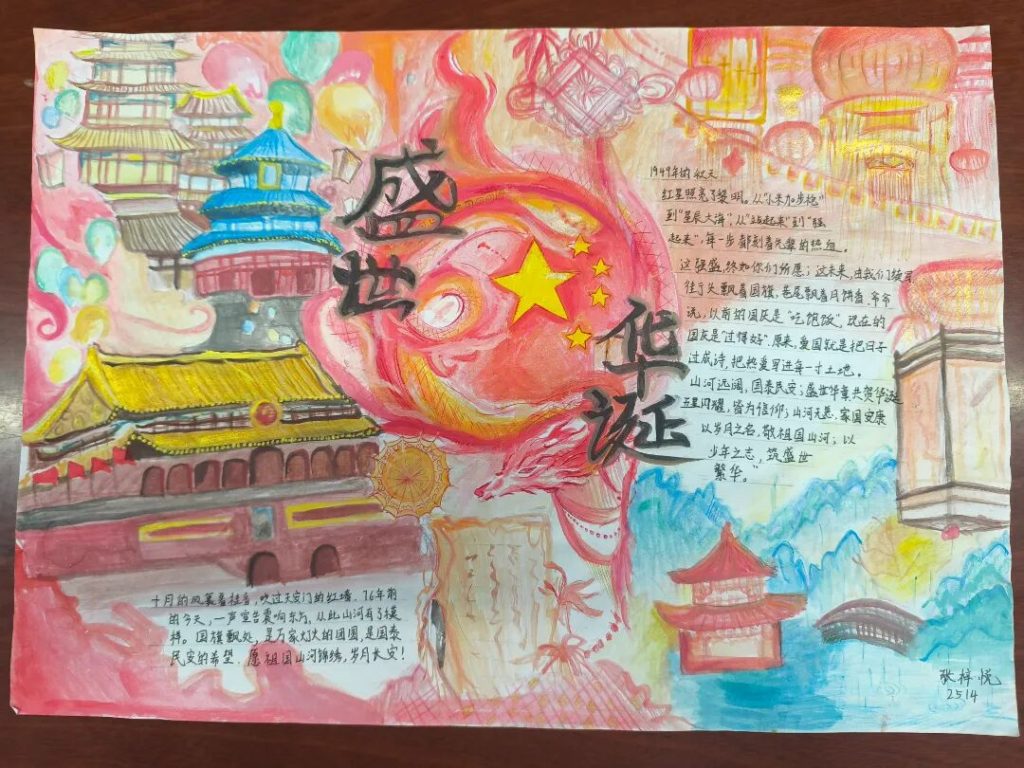 盛世
华诞
1949年的秋天
红星照亮了黎明。从"小米加步枪"
到"星辰大海",从"站起来"到"强
起来",每一步都刻着先辈的热血。
这强盛,终如你们所愿;这未来,由我们续写
往了头飘着国旗,巷尾飘着月饼香,爷爷
说,以前的国庆是"吃饱饭",现在的
国庆是"过得好"。原来,爱国就是把日子
过成诗,把热爱写进每一寸土地。
山河远阔,国泰民安;盛世华章共贺华诞
五星闪耀,皆为信仰;山河无恙,家国安康
以岁月之名,敬祖国山河;以
少年之志,筑盛世
繁华。"
十月的风裹着桂香,吹过天安门的红墙。76年前
的今天,一声宣告震响东方,从此山河有了模
样。国旗飘处,是万家灯火的团圆,是国泰
民安的希望。愿祖国山河锦绣,岁月长安!
张梓悦
2514